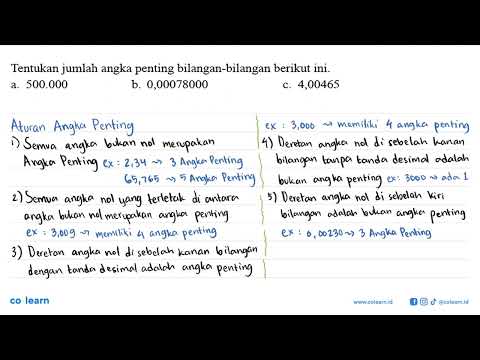 Tentukan jumlah angka penting bilangan-bilangan berikut ini.
a. 500.000 b. 0,00078000 c. 4,00465
Aturan Angka Penting
1) Semua angka bukan nol merupakan
Angka Penting ex : 2,34 → 3 Angka Penting
65,765 → 5 Angka Penting
2) Semua angka nol yang terletak di antara
angka bukan nol merupakan angka penting
ex : 3,009 → memiliki 4 angka penting
3) Deretan angka nol di sebelah kanan bilangan
dengan tanda desimal adalah angka penting
ex : 3,000 → memiliki 4 angka penting
4) Deretan angka nol di sebelah kanan
bilangan tanpa tanda desimal adalah
bukan angka penting ex: 3000 → ada 1
5) Deretan angka nol di sebelah kiri
bilangan adalah bukan angka penting
ex : 0,00230 → 3 Angka Penting
co learn
www.colearn.id
@colearn.id